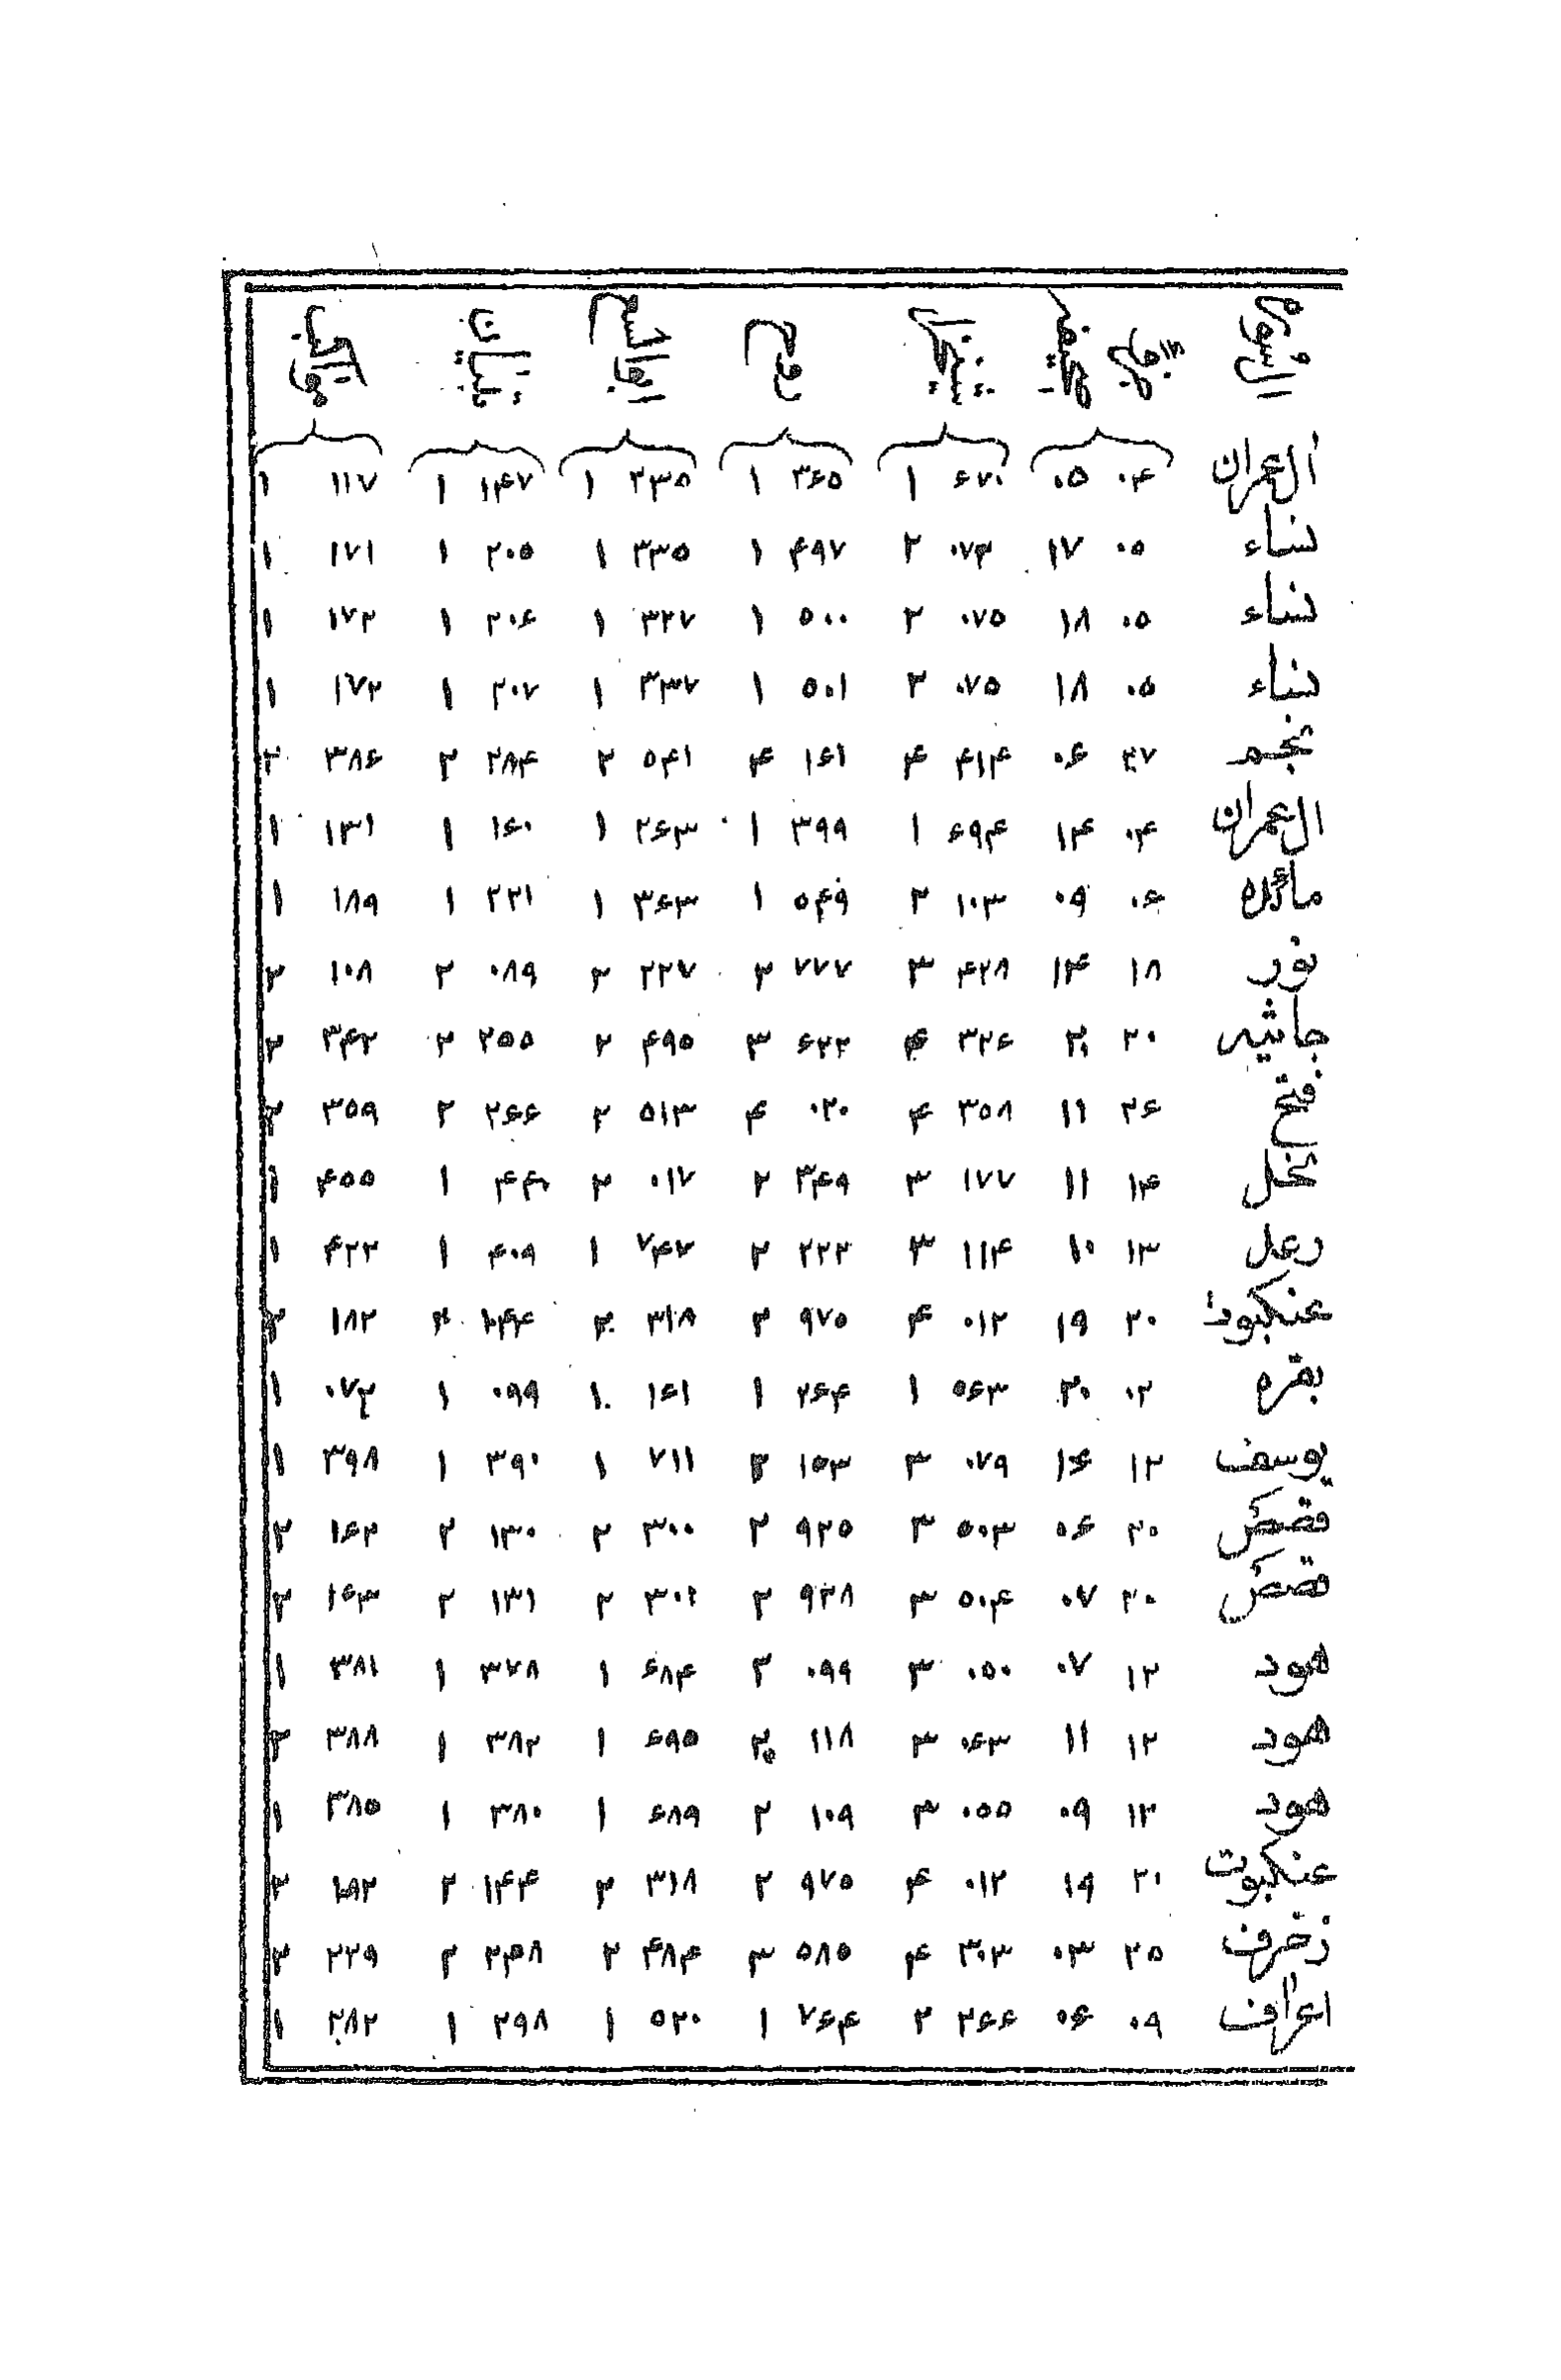 ال عمران ۰۴ ۰۵ ۶۷۰ ۱ ۳۶۵ ۱ ۲۳۸ ۱ ۱۴۷ ۱ ۱۱۷ ۱
نساء ۰۵ ۱۷ ۰۷۳ ۲ ۴۹۷ ۱ ۳۳۵ ۱ ۲۰۵ ۱ ۱۷۱ ۱
نساء ۰۵ ۱۸ ۰۷۵ ۲ ۵۰۰ ۱ ۳۲۷ ۱ ۲۰۶ ۱ ۱۷۲ ۱
نساء ۰۵ ۱۸ ۰۷۵ ۲ ۵۰۱ ۱ ۳۳۷ ۱ ۲۰۷ ۱ ۱۷۲ ۱
نجم ۲۷ ۰۶ ۴۱۴ ۴ ۱۶۱ ۴ ۵۴۱ ۲ ۲۸۴ ۲ ۳۸۶ ۲
ال عمران ۰۴ ۱۴ ۶۹۴ ۱ ۳۹۹ ۱ ۲۶۳ ۱ ۱۶۰ ۱ ۱۳۱ ۱
مائده ۰۶ ۰۹ ۱۰۳ ۲ ۵۴۹ ۱ ۳۶۳ ۱ ۲۲۱ ۱ ۱۸۹ ۱
نور ۱۸ ۱۴ ۴۲۸ ۳ ۷۷۷ ۲ ۲۲۷ ۲ ۰۸۹ ۲ ۱۰۸ ۲
جاثیه ۲۰ ۲۰ ۳۲۶ ۴ ۶۲۲ ۳ ۴۹۵ ۲ ۲۵۵ ۲ ۳۴۲ ۲
فتح ۲۶ ۱۱ ۳۵۸ ۴ ۰۲۰ ۴ ۵۱۳ ۲ ۲۶۶ ۲ ۳۵۹ ۲
نحل ۱۴ ۱۱ ۱۷۷ ۳ ۳۴۹ ۲ ۰۱۷ ۲ ۴۴۰ ۱ ۴۵۵ ۱
رعد ۱۳ ۱۰ ۱۱۴ ۳ ۲۲۲ ۲ ۷۴۷ ۱ ۴۰۹ ۱ ۴۲۲ ۱
عنکبوت ۲۰ ۱۹ ۰۱۲ ۴ ۹۷۵ ۲ ۳۱۸ ۲ ۱۴۴ ۲ ۱۸۲ ۲
بقره ۰۲ ۲۰ ۵۶۳ ۱ ۲۶۴ ۱ ۱۶۱ ۱ ۰۹۹ ۱ ۰۷۳ ۱
یوسف ۱۲ ۱۶ ۰۷۹ ۳ ۱۵۳ ۲ ۷۱۱ ۱ ۳۹۰ ۱ ۳۹۸ ۱
قصص ۲۰ ۰۶ ۵۰۳ ۳ ۹۲۵ ۲ ۳۰۰ ۲ ۱۳۰ ۲ ۱۶۲ ۲
قصص ۲۰ ۰۷ ۵۰۴ ۳ ۹۲۸ ۲ ۳۰۲ ۲ ۱۳۱ ۲ ۱۶۳ ۲
هود ۱۲ ۰۷ ۰۵۰ ۳ ۰۹۹ ۲ ۶۸۴ ۱ ۳۷۸ ۱ ۳۸۱ ۱
هود ۱۲ ۱۱ ۰۶۳ ۳ ۱۱۸ ۲ ۶۹۵ ۱ ۳۸۲ ۱ ۳۸۸ ۲
هود ۱۲ ۰۹ ۰۵۵ ۳ ۱۰۹ ۲ ۶۸۹ ۱ ۳۸۰ ۱ ۳۸۵ ۱
عنکبوت ۲۰ ۱۹ ۰۱۲ ۴ ۹۷۵ ۲ ۳۱۸ ۲ ۱۴۴ ۲ ۱۹۲ ۲
زخرف ۲۵ ۰۳ ۳۰۳ ۴ ۵۸۵ ۳ ۴۸۴ ۲ ۲۴۸ ۲ ۲۲۹ ۲
اعراف ۰۹ ۰۶ ۲۶۶ ۲ ۷۶۴ ۱ ۵۲۰ ۱ ۲۹۸ ۱ ۲۸۲ ۱